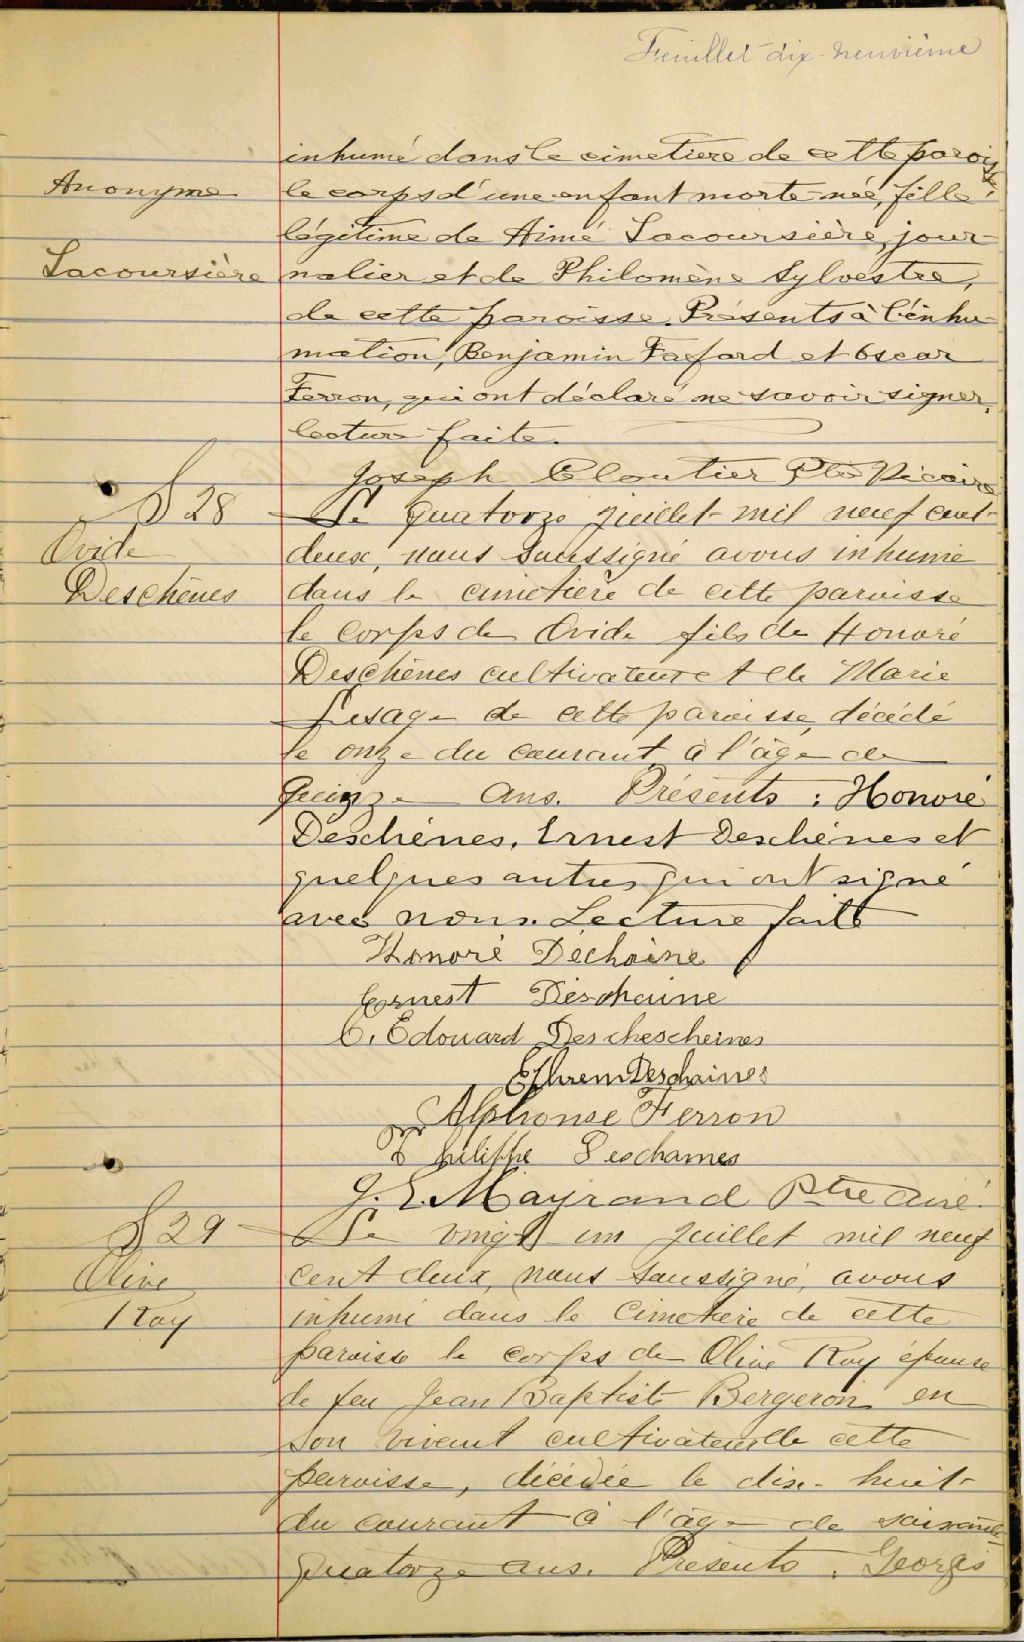 Feuillet dix-neuvième
inhumé dans le cimetière de cette paroisse
Anonyme le corps d'une enfant morte-née, fille
légitime de Aimé Lacoursière, jour-
Lacoursière nalier et de Philomène Sylvestre,
de cette paroisse. Présents à l'inhu-
mation, Benjamin Fafard et Oscar
Ferron, qui ont déclaré ne savoir signer.
lecture faite.
Joseph Cloutier Ptre Vicaire
S 28 Le quatorze juillet mil neuf cent-
Ovide deux, nous soussigné avons inhumé
Deschênes dans le cimetière de cette paroisse
le corps de Ovide fils de Honoré
Deschênes cultivateur et de Marie
Lesage de cette paroisse, décédé
le onze du courant à l'âge de
quinze ans. Présents : Honoré
Deschênes, Ernest Deschênes et
quelques autres qui ont signé
avec nous. Lecture faite
Honoré Dechaine
Ernest Deschaine
O. Edouard Deschescheines
Ephrem Deschaines
Alphonse Ferron
Philippe Deschames
J. E. Mayrand Ptre curé.
S 29 Le vingt un juillet mil neuf
Olive cent deux, nous soussigné, avons
Roy inhumé dans le cimetière de cette
paroisse le corps de Olive Roy épouse
de feu Jean Baptiste Bergeron en
son vivant cultivateur de cette
paroisse, décédée le dix-huit
du courant à l'âge de soixante
quatorze ans. Présents : Georges